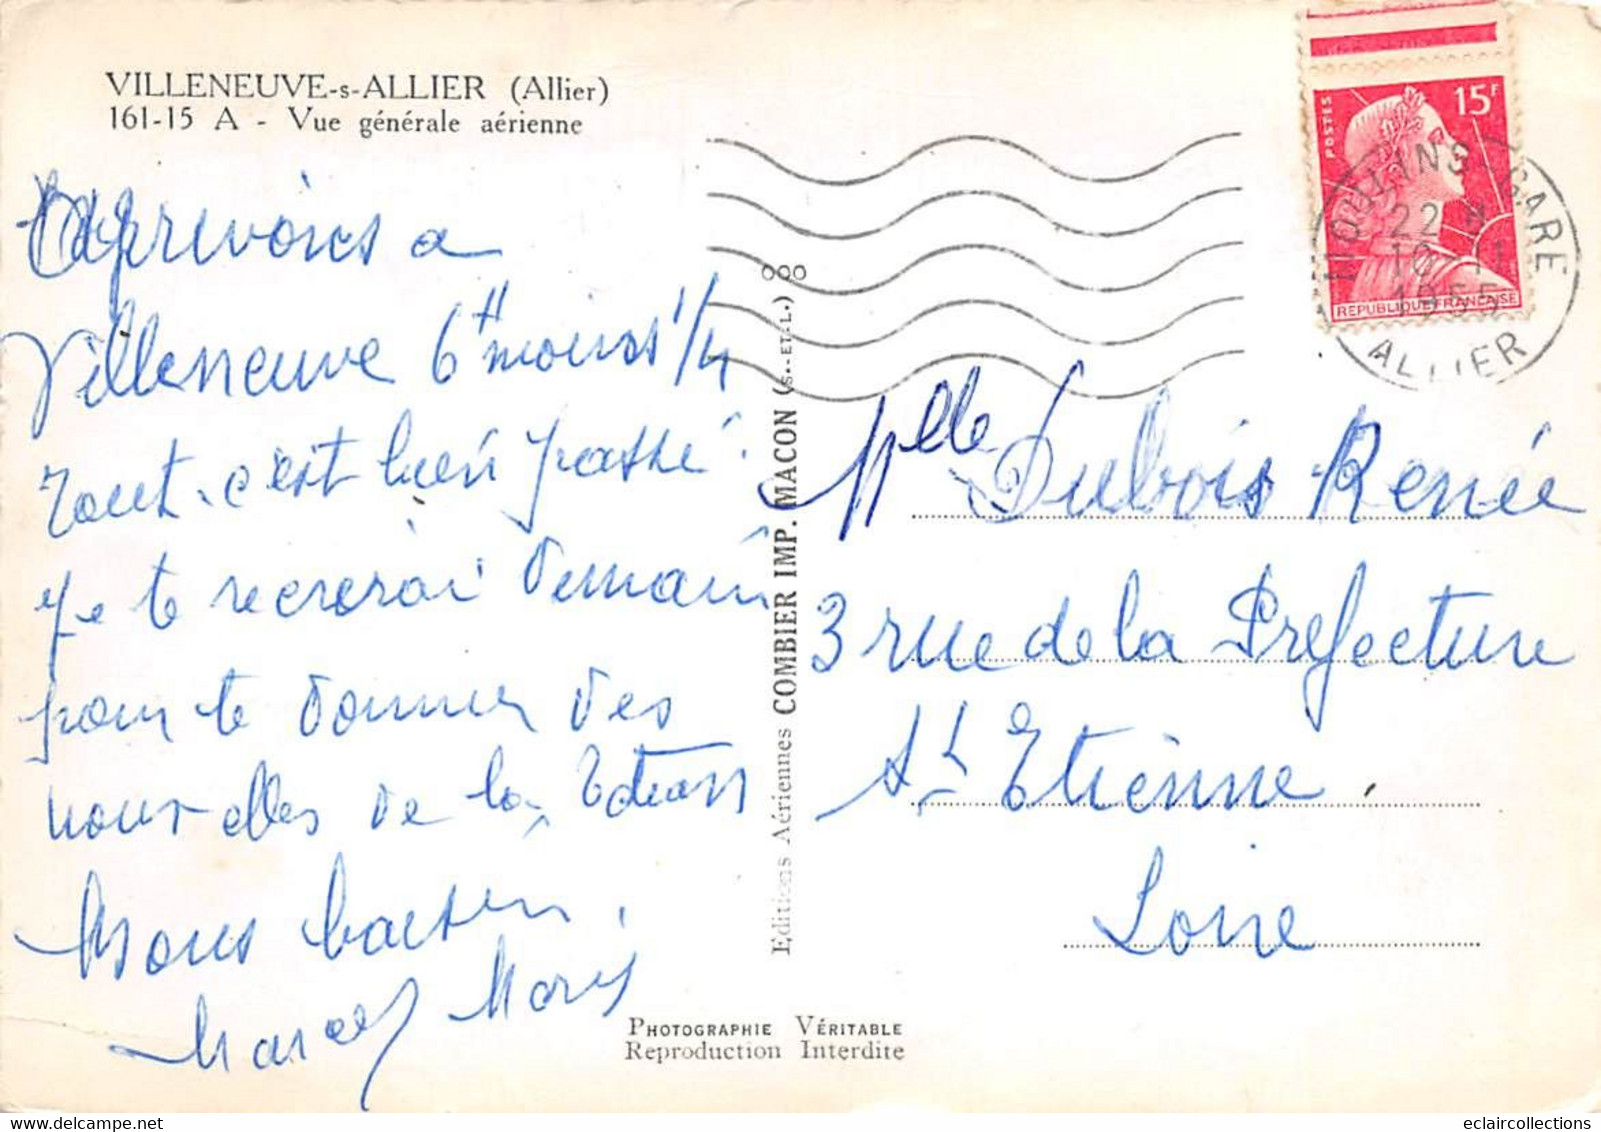 VILLENEUVE-s-ALLIER (Allier)
161-15 A - Vue générale aérienne
a
Villeneuve 6H moins 1/4
Tout c'est bien passé.
Je te recrerai demain
pour te donner des
nouvelles de la
Bons baisers.
Marcel
Editions Aériennes COMBIER IMP. MACON (S.-ET-L.) 000
PHOTOGRAPHIE VÉRITABLE
Reproduction Interdite
POSTES 15F
REPUBLIQUE FRANÇAISE
MOULINS GARE
22 H
10 - 11
1955
ALLIER
Melle Dubois Renée
3 rue de la Prefecture
St Etienne.
Loire
eclaircollections